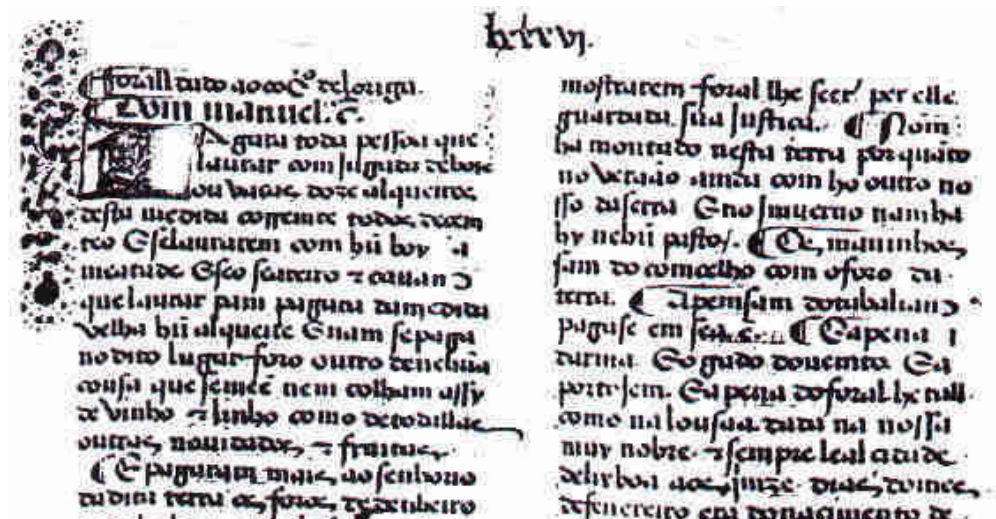 lxxxvj.
foral dado ao coc̃o de loriga.
Dom manuel. &c.
Pagara toda pessoa que
laurar com Julgada de bois
ou vacas, doze alqueires
desta medida corrente todos, decem
teo E se laurarem com hũ boy a
meatade E seo seareiro & cauam
que laurar pam pagara da medida
velha hũ alqueire E nam se paga
no dito lugar foro outro de nehũa
cousa que semee nem colham assy
de vinho & linho como de todallas
outras, nouidades, & fruitas,
E pagaram mais, ao senhorio
da dita terra os, foros, de denheiro
mostrarem foral lhe seer per elle
guardada sua Justica. Nom
ha montado nesta terra porquãto
no veraão andam com ho outro no
sso da serra E no Jmuerno nam ha
hy nehũ pasto. Os, maninhos,
sam do concelho com o foro da
terra. A pemsam do tabaliam
pagase em sea E a pena
darma. E o gado do vento. E a
portajem. E a pena do foral he tall
como na lousaa. dada na nossa
muy nobre & sempre leal cidade
de lixboa aos, quinze dias, do mes,
de fenereiro era do nacimento de